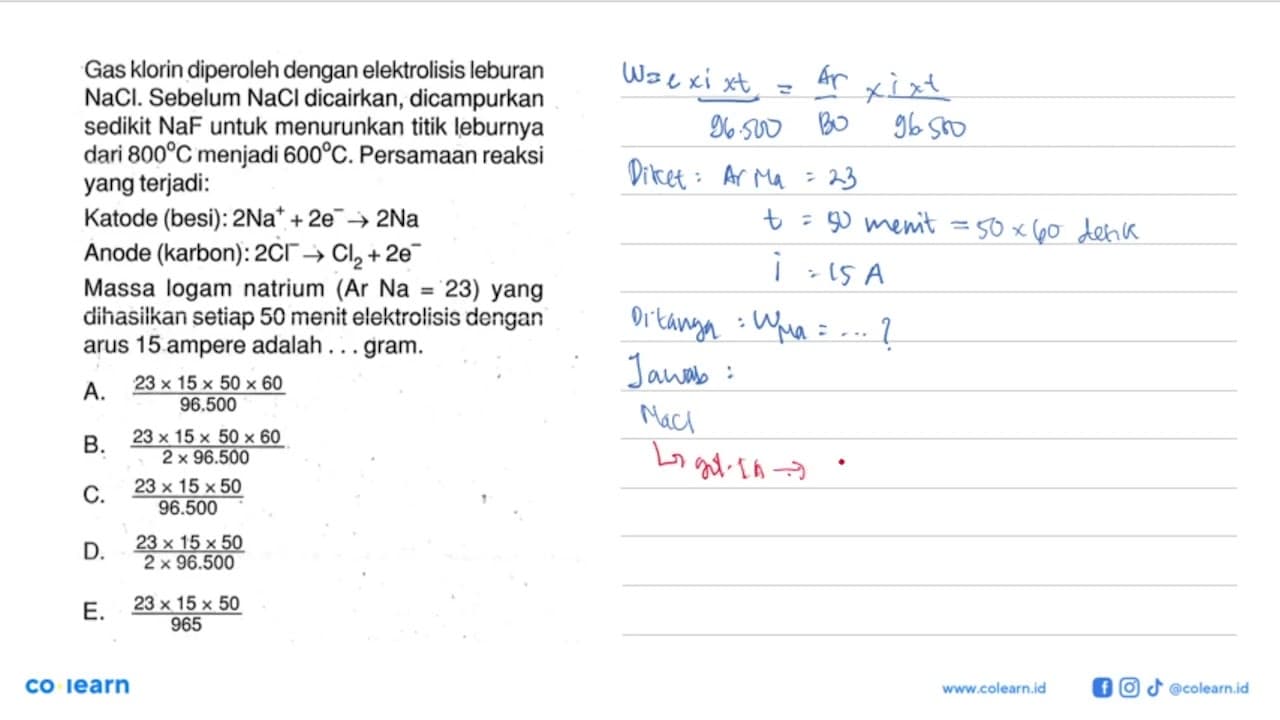 Gas klorin diperoleh dengan elektrolisis leburan
NaCl. Sebelum NaCl dicairkan, dicampurkan
sedikit NaF untuk menurunkan titik leburnya
dari 800°C menjadi 600°C. Persamaan reaksi
yang terjadi:
Katode (besi): 2Na⁺ + 2e⁻ → 2Na
Anode (karbon): 2Cl⁻ → Cl₂ + 2e⁻
Massa logam natrium (Ar Na = 23) yang
dihasilkan setiap 50 menit elektrolisis dengan
arus 15 ampere adalah . . . gram.
A. 23 × 15 × 50 × 60
96.500
B. 23 × 15 × 50 × 60
2 × 96.500
C. 23 × 15 × 50
96.500
D. 23 × 15 × 50
2 × 96.500
E. 23 × 15 × 50
965
W = e × i × t = Ar × i × t
96.500 BO 96.500
Diket : Ar Na = 23
t = 50 menit = 50 × 60 detik
i = 15 A
Ditanya : W Na = ... ?
Jawab :
NaCl
↳ gol. IA →
co learn
www.colearn.id
@colearn.id